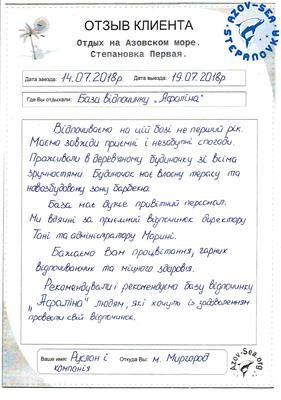 ОТЗЫВ КЛИЕНТА
Отдых на Азовском море.
Степановка Первая.
AZOV-SEA
STEPANOVKA
Дата заезда: 14.07.2018р Дата выезда: 19.07.2018р
Где Вы отдыхали: База відпочинку „Афаліна"
Відпочиваємо на цій базі не перший рік.
Маємо завжди приємні і незабутні спогади.
Проживали в дерев'яному будиночку зі всіма
зручностями. Будиночок має власну терасу та
новозбудовану зону барбекю.
База має дуже привітний персонал.
Ми вдячні за приємний відпочинок директору
Тані та адміністратору Марині.
Бажаємо Вам процвітання, гарних
відпочиваючих та міцного здоров'я.
Рекомендували і рекомендуємо базу відпочинку
„Афаліна" людям, які хочуть із задоволенням
провести свій відпочинок.
Ваше имя: Руслан і компанія Откуда Вы: м. Миргород
Azov-Sea.org